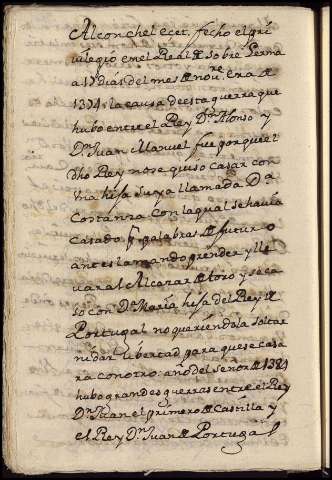 Alconchel ecet. fecho el pri
uilegio en el Real de sobre Lerma
a 17 dias del mes de nou.re era de
1374: la causa de esta guerra que
hubo entre el Rey D.n Alonso y
D.n Juan Manuel fue porque el
dho Rey no se quiso casar con
Vna hija suya llamada Da
Costanza con la qual se hauia
Casado p. palabras de futuro
antes la mando prender y lle
uar al Alcazar de toro y se ca
so con Da Maria hija del Rey de
Portugal no queriendola soltar
ni dar libertad para que se casa
ra con otro: año del señor de 1384
hubo grandes guerras entre el Rey
D.n Juan el primero de Castilla y
el Rey D.n Juan de Portugal